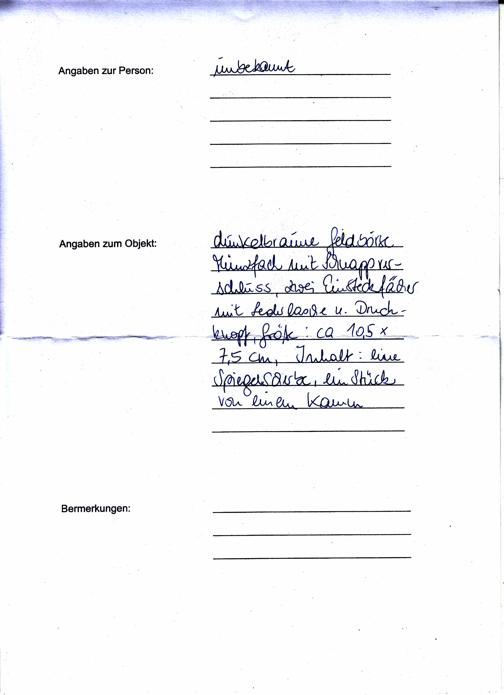 Angaben zur Person:
unbekannt
Angaben zum Objekt:
dunkelbraune Geldbörse
Münzfach mit Schnappver-
schluss, zwei Einsteckfächer
mit Lederlasche u. Druck-
knopf, Größe: ca 10,5 x
7,5 cm, Inhalt: eine
Spiegelscherbe, ein Stück
von einem Kamm
Bermerkungen: